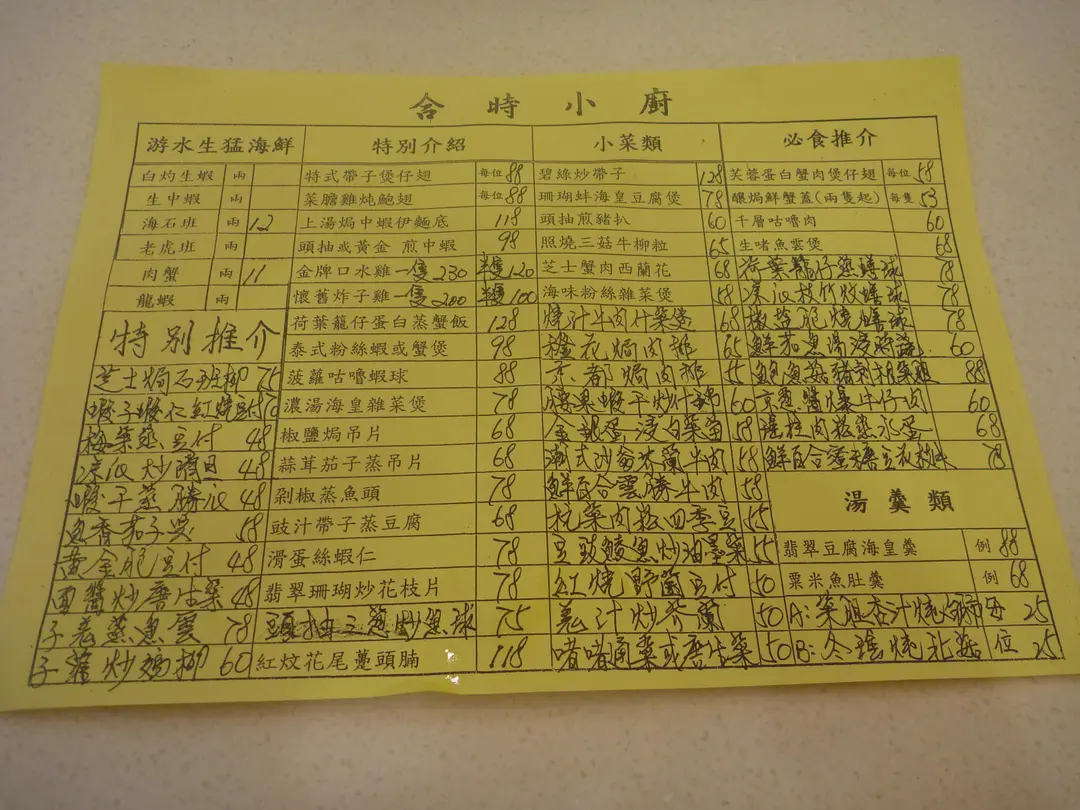 合時小廚
游水生猛海鮮
白灼生蝦 兩
生中蝦 兩
海石班 兩 12
老虎班 兩
肉蟹 兩 11
龍蝦 兩
特別推介
芝士焗石班柳 75
蝦子蝦仁紅燒豆付
梅菜蒸豆付 48
48
蝦干蒸勝瓜 48
魚香茄子煲 58
黃金脆豆付 48
面醬炒唐生菜 48
子羌蒸魚雲 78
子蘿炒 柳 60
特別介紹
特式帶子煲仔翅 每位 88
菜膽雞炖鮑翅 每位 88
上湯焗中蝦伊麵底 118
頭抽或黃金 煎中蝦 98
金牌口水雞 一隻 230 半隻 120
懷舊炸子雞 一隻 200 半隻 100
荷葉籠仔蛋白蒸蟹飯 128
泰式粉絲蝦或蟹煲 98
菠蘿咕嚕蝦球 88
濃湯海皇雜菜煲 78
椒鹽焗吊片 68
蒜茸茄子蒸吊片 68
剁椒蒸魚頭 78
豉汁帶子蒸豆腐 68
滑蛋絲蝦仁 78
翡翠珊瑚炒花枝片 78
頭抽三蔥炒魚球 75
紅炆花尾躉頭腩 118
小菜類
碧綠炒帶子 128
珊瑚蚌海皇豆腐煲 78
頭抽煎豬扒 60
照燒三菇牛柳粒 65
芝士蟹肉西蘭花 68
海味粉絲雜菜煲 58
燒汁牛肉什菜煲 68
橙花焗肉排 65
京都焗肉排 55
腰果蝦干炒什錦 60
金銀蛋浸白菜苗 58
潮式沙爹芥蘭牛肉 58
鮮百合雲勝牛肉 58
杭菜肉松四季豆 55
豆豉鯪魚炒油墨菜 55
紅燒野菌豆付 50
羌汁炒芥蘭 50
啫啫通菜或唐生菜 50
必食推介
芙蓉蛋白蟹肉煲仔翅 每位 58
釀焗鮮蟹蓋(兩隻起) 每隻 53
千層咕嚕肉 60
生啫魚雲煲 68
荷葉籠仔蒸鱔球 78
枝竹炆鱔球 78
椒鹽脆燒鱔球 78
鮮茄魚湯浸 60
鮑魚菇豬 88
京蔥醬爆牛仔肉 60
瑤柱肉松蒸水蛋 68
鮮百合蜜糖豆 78
湯羹類
翡翠豆腐海皇羹 例 88
粟米魚肚羹 例 68
A: 杏汁燉 每 25
B: 冬 燉北菇 位 25